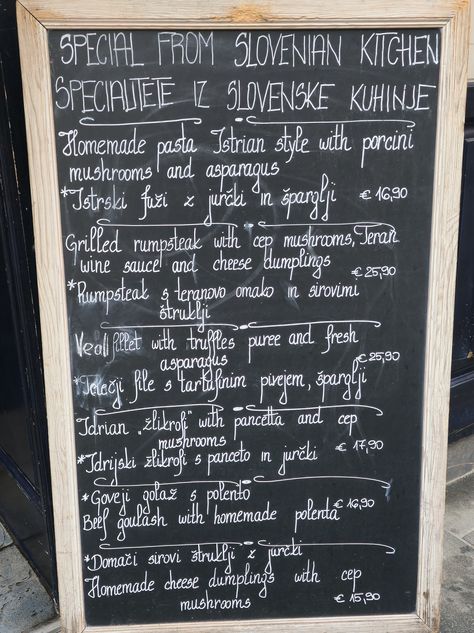 SPECIAL FROM SLOVENIAN KITCHEN
SPECIALITETE IZ SLOVENSKE KUHINJE
Homemade pasta Istrian style with porcini
mushrooms and asparagus
*Istrski fuži z jurčki in šparglji € 16,90
Grilled rumpsteak with cep mushrooms, Teran
wine sauce and cheese dumplings € 25,90
*Rumpsteak s teranovo omako in sirovimi
štruklji
Veal fillet with truffles puree and fresh
asparagus € 25,90
*Telečji file s tartufinim pirejem, šparglji
Idrian "žlikrofi" with pancetta and cep
mushrooms
*Idrijski žlikrofi s panceto in jurčki € 17,90
*Goveji golaž s polento € 16,90
Beef goulash with homemade polenta
*Domači sirovi štruklji z jurčki
Homemade cheese dumplings with cep
mushrooms € 15,90